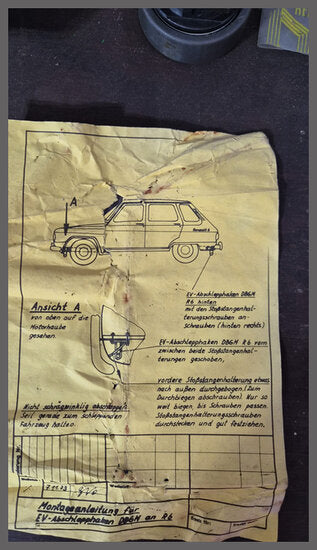 A
Renault 6
EV-Abschlepphaken DBGM
R6 hinten
mit den Stoßstangenhal-
terungsschrauben an-
schrauben (hinten rechts)
Ansicht A
von oben auf die
Motorhaube
gesehen.
EV-Abschlepphaken DBGM R6 vorn
zwischen beide Stoßstangenhal-
terungen geschoben,
vordere Stoßstangenhalterung etwas
nach außen durchgebogen! (Zum
Durchbiegen abschrauben) Nur so
weit biegen bis Schrauben passen.
Stoßstangenhalterungsschrauben
durchstecken und gut festziehen.
Nicht schrägwinklig abschleppen.
Seil gerade zum schleppenden
Fahrzeug halten.
Montageanleitung für
EV-Abschlepphaken DBGM an R6